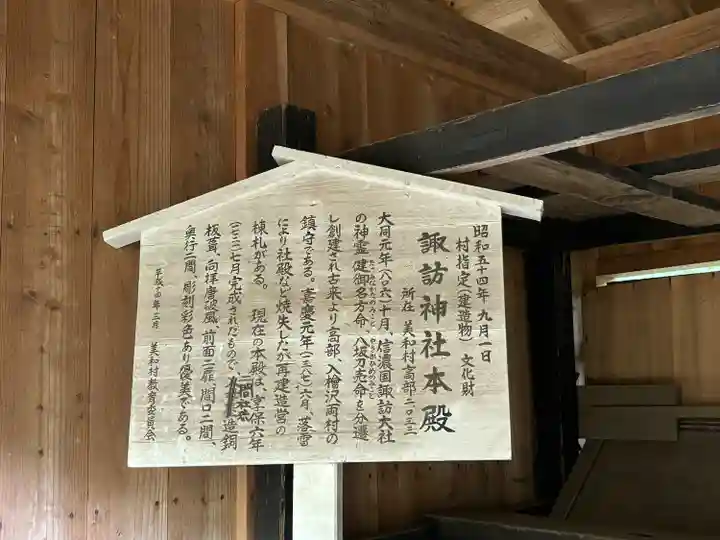 昭和五十四年九月一日
村指定(建造物)文化財
諏訪神社本殿
所在 美和村高部二〇三二
大同元年(八〇六)十月、信濃国諏訪大社
の神霊健御名方命、八坂刀売命を分遷
たけみなかたのみこと やさかとめのみこと
し創建され古来より高部、入檜沢両村の
鎮守である。嘉慶元年(一三八七)六月、落雷
により社殿など焼失したが再建造営の
棟札がある。 現在の本殿は、享保六年
(一七二一)七月完成されたもので、二間社流造銅
板葺、向拝唐破風、前面二扉、間口二間、
奥行二間、彫刻彩色あり優美である。
平成十四年三月 美和村教育委員会